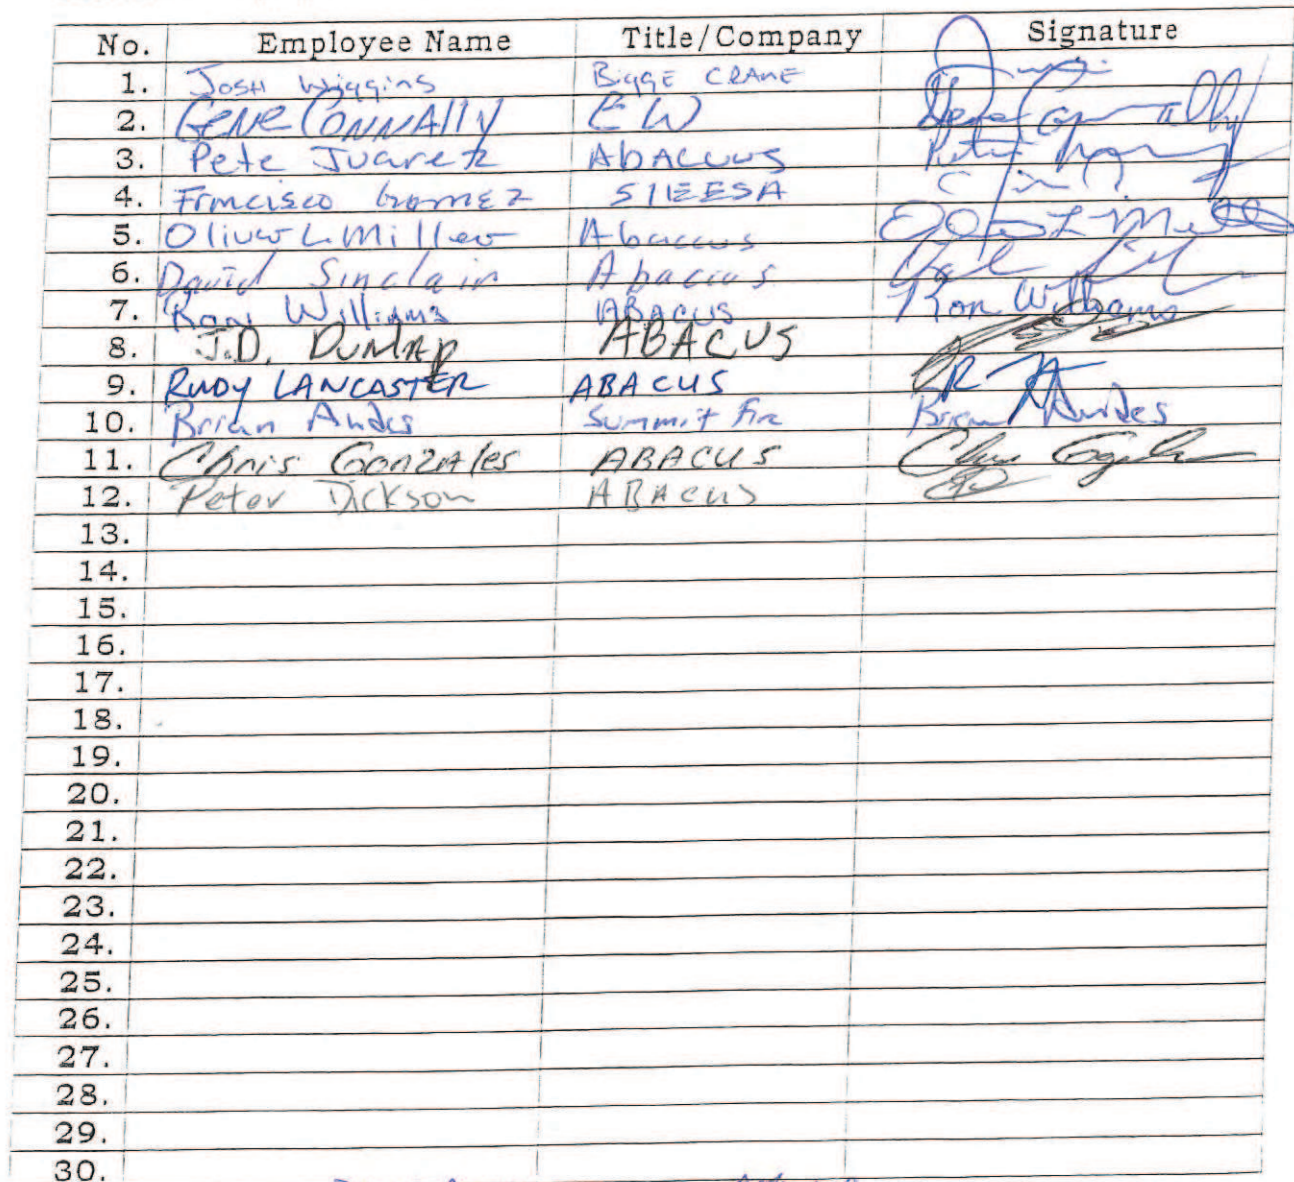 No. Employee Name Title/Company Signature
1. Josh Wiggins Bigge CRANE
2. GENE CONNAlly EW Gene Connally
3. Pete Juarez AbACUUS
4. Francisco Gomez SIEESA
5. Oliver L. Miller Abaccus
6. David Sinclair Abacus
7. Ron Williams ABACUS Ron Williams
8. J.D. DUNLAP ABACUS
9. RUDY LANCASTER ABACUS
10. Brian Andes Summit fire Brian Andes
11. Chris GonzAles ABACUS
12. Peter Dickson ABACUS
13.
14.
15.
16.
17.
18.
19.
20.
21.
22.
23.
24.
25.
26.
27.
28.
29.
30.